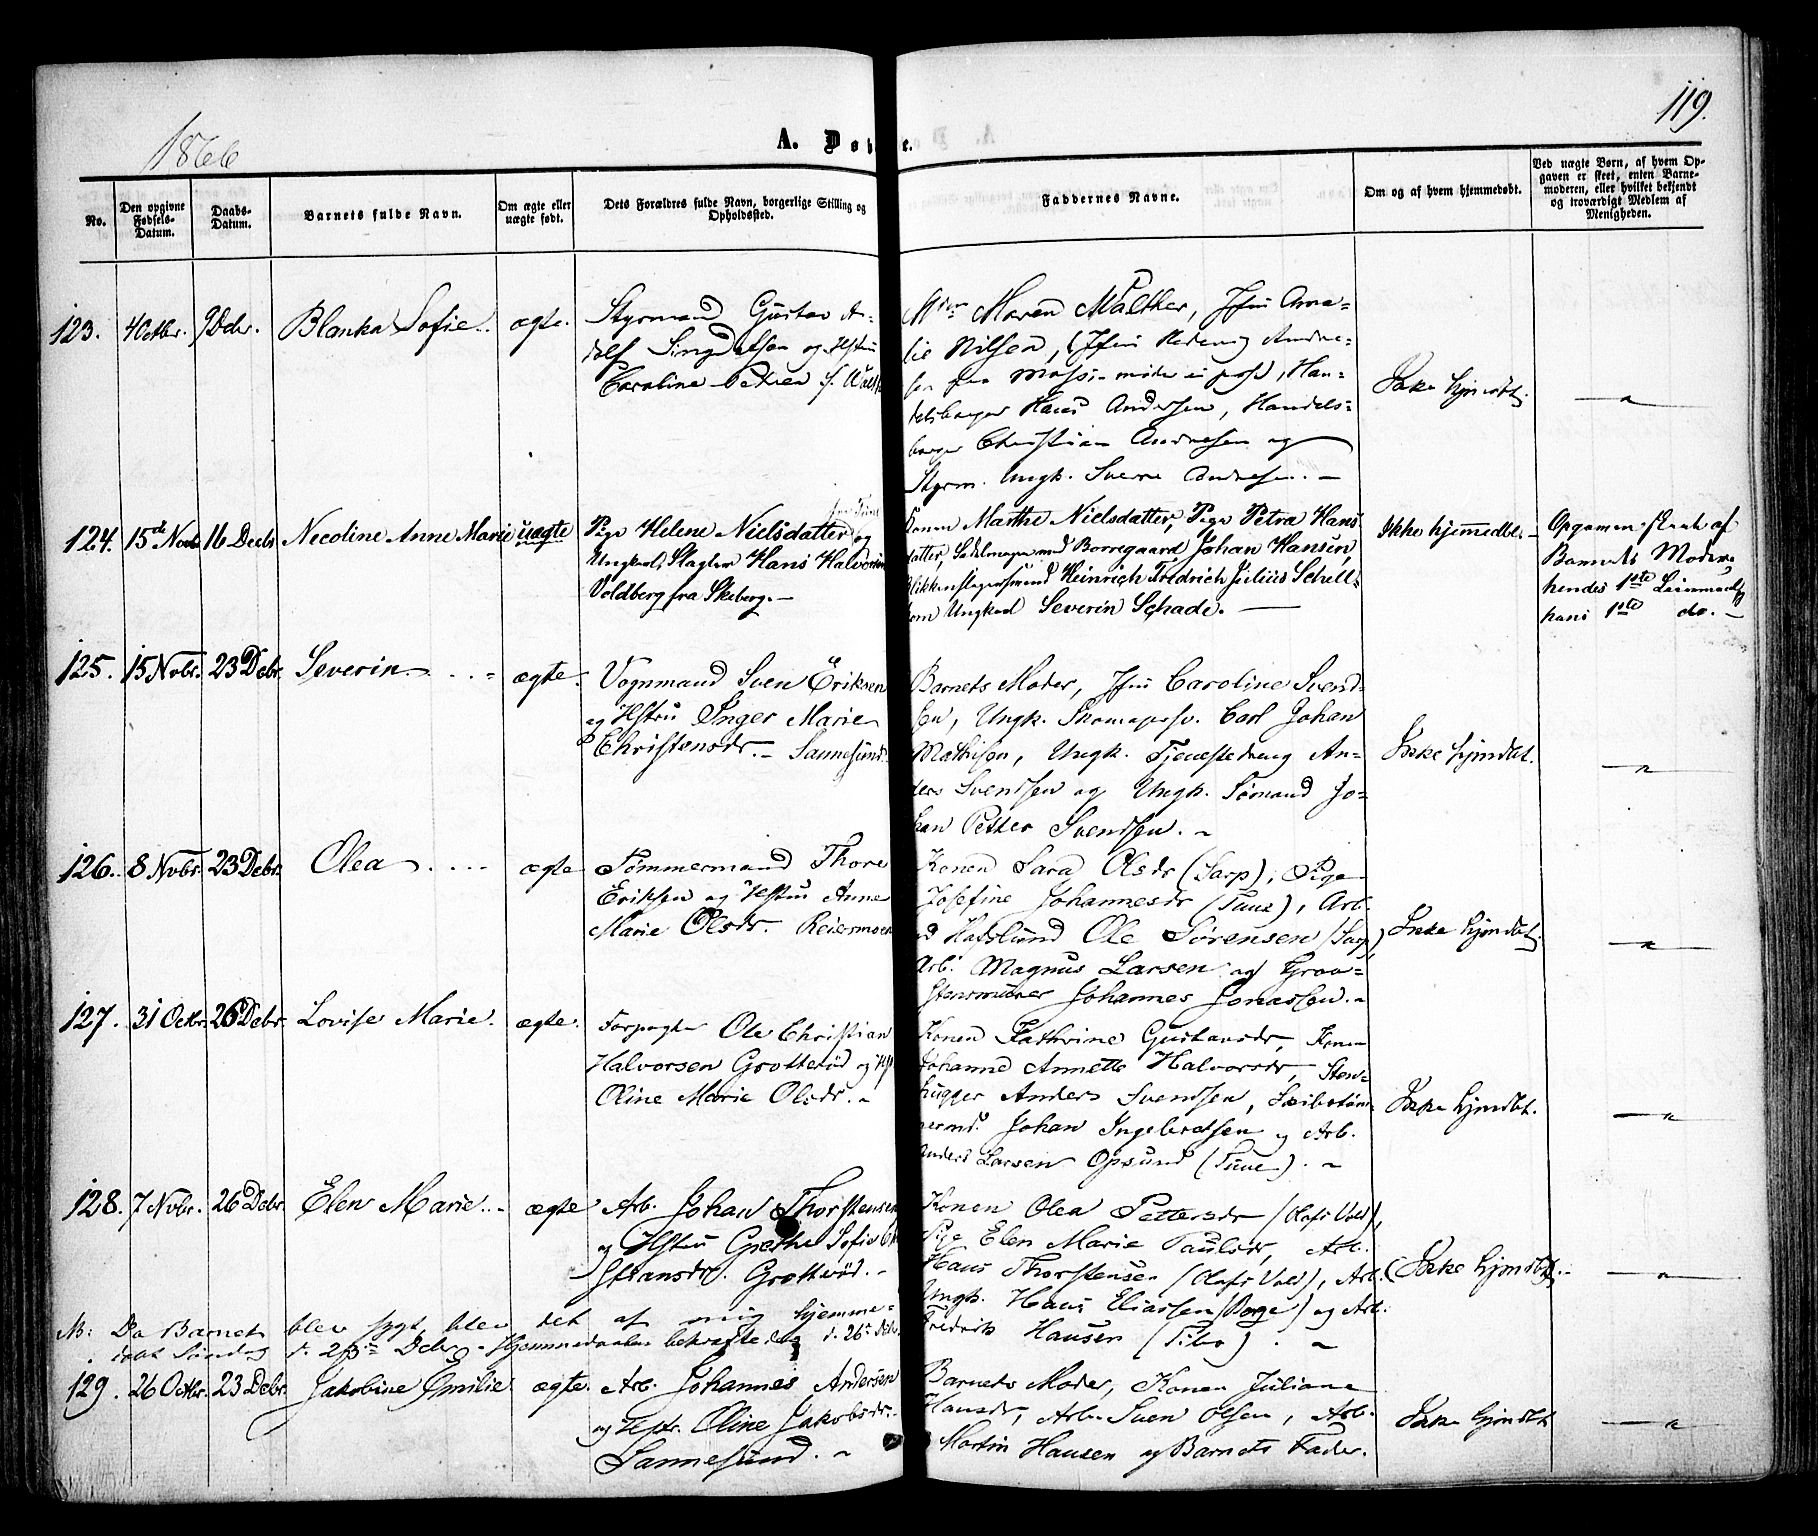 1866
A. Døbte.
119.
No.
Den opgivne Fødsels-Datum.
Daabs-Datum.
Barnets fulde Navn.
Om ægte eller uægte født.
Dets Forældres fulde Navn, borgerlige Stilling og Opholdssted.
Faddernes Navne.
Om og af hvem hjemmedøbt.
Ved uægte Børn, af hvem Op-
gaven er skeet, enten Barne-
moderen, eller hvilket bekjendt
og troværdigt Medlem af
Menigheden.
123. 4 Octbr. 9 Dcbr. Blanka Sofie. ægte.
Styrmand Gustav
og Hstru
Caroline
Maren Walther, Jfru Ama-
lie Nilsen, (Jfru Andre-
sen, Han-
delsborger Hans Andersen, Handels-
borger Christian Andresen og
Styrm. Ungk. Sverre Andresen. -
Ikke hjmdbt.
124. 15de Novb 16 Decb Necoline Anne Marie uægte
Pige Helene Nielsdatter og
Ungkarl, Slagter Hans Halvorsen
Voldberg fra Skeberg. -
Konen Marthe Nielsdatter, Pige Petra Hans
datter, Sadelmagersvend Borregaard Johan Hansen,
Blikkenslagersvend Heinrich Fredrich Julius Schell
Ungkarl Severin Schade. -
Ikke hjemmedbt. -
Opgaven skeet af
Barnets Moder
hendes 1ste Leiermaal,
hans 1ste do. -
125. 15 Nvbr. 23 Debr. Severin. ægte.
Vognmand Sven Eriksen
og Hstru Inger Marie
Christensdr. - Sannesund.
Barnets Moder, Jfru Caroline Svend-
sen, Ungk. Carl Johan
Mathisen, Ungk. Tjenestedreng An-
ders Svendsen og Ungk. Sømand Jo-
han Petter Svendsen. -
Ikke hjmdbt.
126. 8 Nvbr. 23 Debr. Olea ægte
Tømmermand Thore
Eriksen og Hstru Anne
Marie Olsdr. Reiersmoen
Konen Sara Olsdr (Sarp), Pige
Josefine Johannesdr (Tune), Arb.
Hafslund Ole Sørensen (Sarp)
Arb. Magnus Larsen og Graa-
stensmurer Johannes Jonassen. -
Ikke hjmdbt.
127. 31 Octbr. 26 Debr. Lovise Marie. ægte.
Forpagter Ole Christian
Halvorsen Grotterød og Hst
Oline Marie Olsdr. -
Konen Kathrine Gustavsdr, Konen
Johanne Annette Halvorsdr, Sten-
hugger Anders Svendsen, Skibstøm-
mermd. Johan Ingebretsen og Arb.
Anders Larsen Opsund (Tune). -
Ikke hjmdbt.
128. 7 Nvbr. 26 Debr. Elen Marie. - ægte
Arb. Johan Thorstensen
og Hstru Grethe Sofie
Grotterød. -
Konen Olea Pettersdr (Olafs Vold),
Pige Elen Marie Paulsdr, Arb.
Hans Thorstensen (Olafs Vold), Arb.
Ungk. Hans Eliassen (Borge) og Arb.
Fredrik Hansen (Tibo). -
(Ikke hjmdbt). -
NB: Da Barnet blev sygt, blev det af mig hjemme-
døbt Søndag d. Debr. - Hjemmedaaben bekræftedes d. 26de Debr.
129. 26 Octbr. 23 Debr. Jakobine Emilie ægte.
Arb. Johannes Andersen
og Hstr. Oline Jakobsdr.
Sannesund. -
Barnets Moder, Konen Juliane
Hansdr, Arb. Sven Olsen, Arb.
Martin Hansen og Barnets Fader.
Ikke hjmdbt